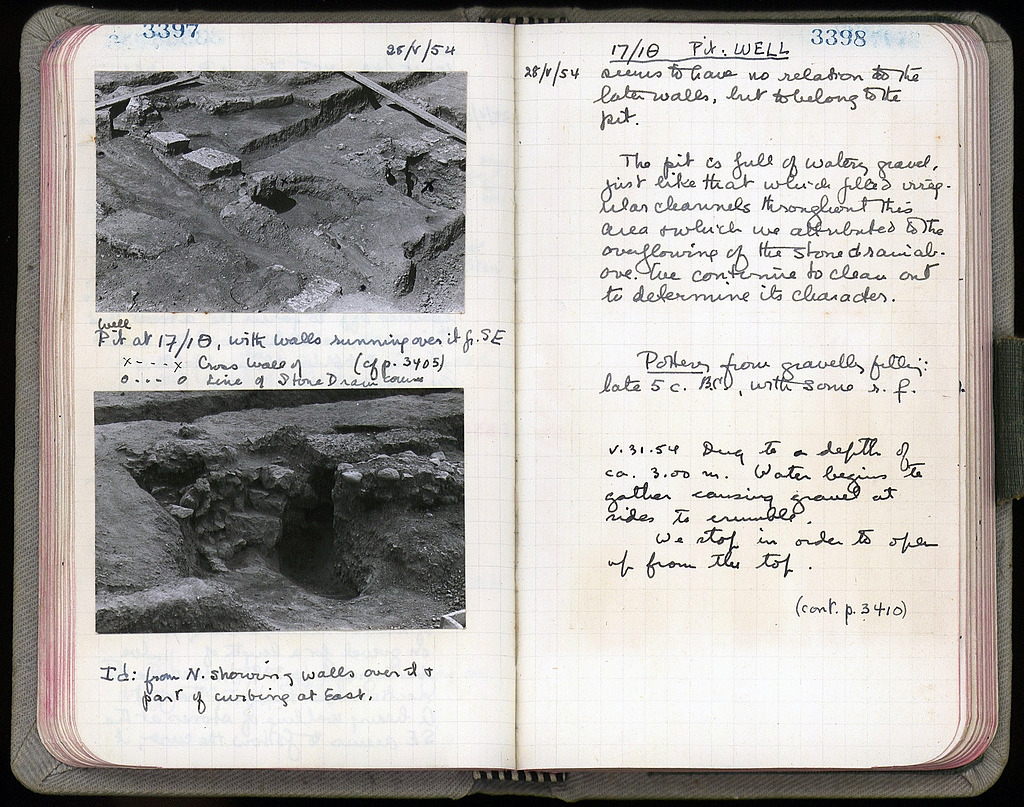 3397
28/V/54
well
Pit at 17/ΙΘ, with walls running over it fr. SE
x - - - - x Cross Wall of (cf p. 3405)
o - - - o Line of Stone Drain
Id: from N. showing walls over it &
part of curbing at East.
17/ΙΘ Pit. WELL 3398
28/V/54 seems to have no relation to the
later walls, but to belong to the
pit.
The pit is full of watery gravel,
just like that which filled irreg-
ular channels throughout this
area & which we attributed to the
overflowing of the stone drain ab-
ove. We continue to clean out
to determine its character.
Pottery from gravelly filling:
late 5 c. BC, with some r. f.
V.31.54 Dug to a depth of
ca. 3.00 m. Water begins to
gather causing gravel at
sides to crumble.
We stop in order to open
up from the top.
(cont. p. 3410)